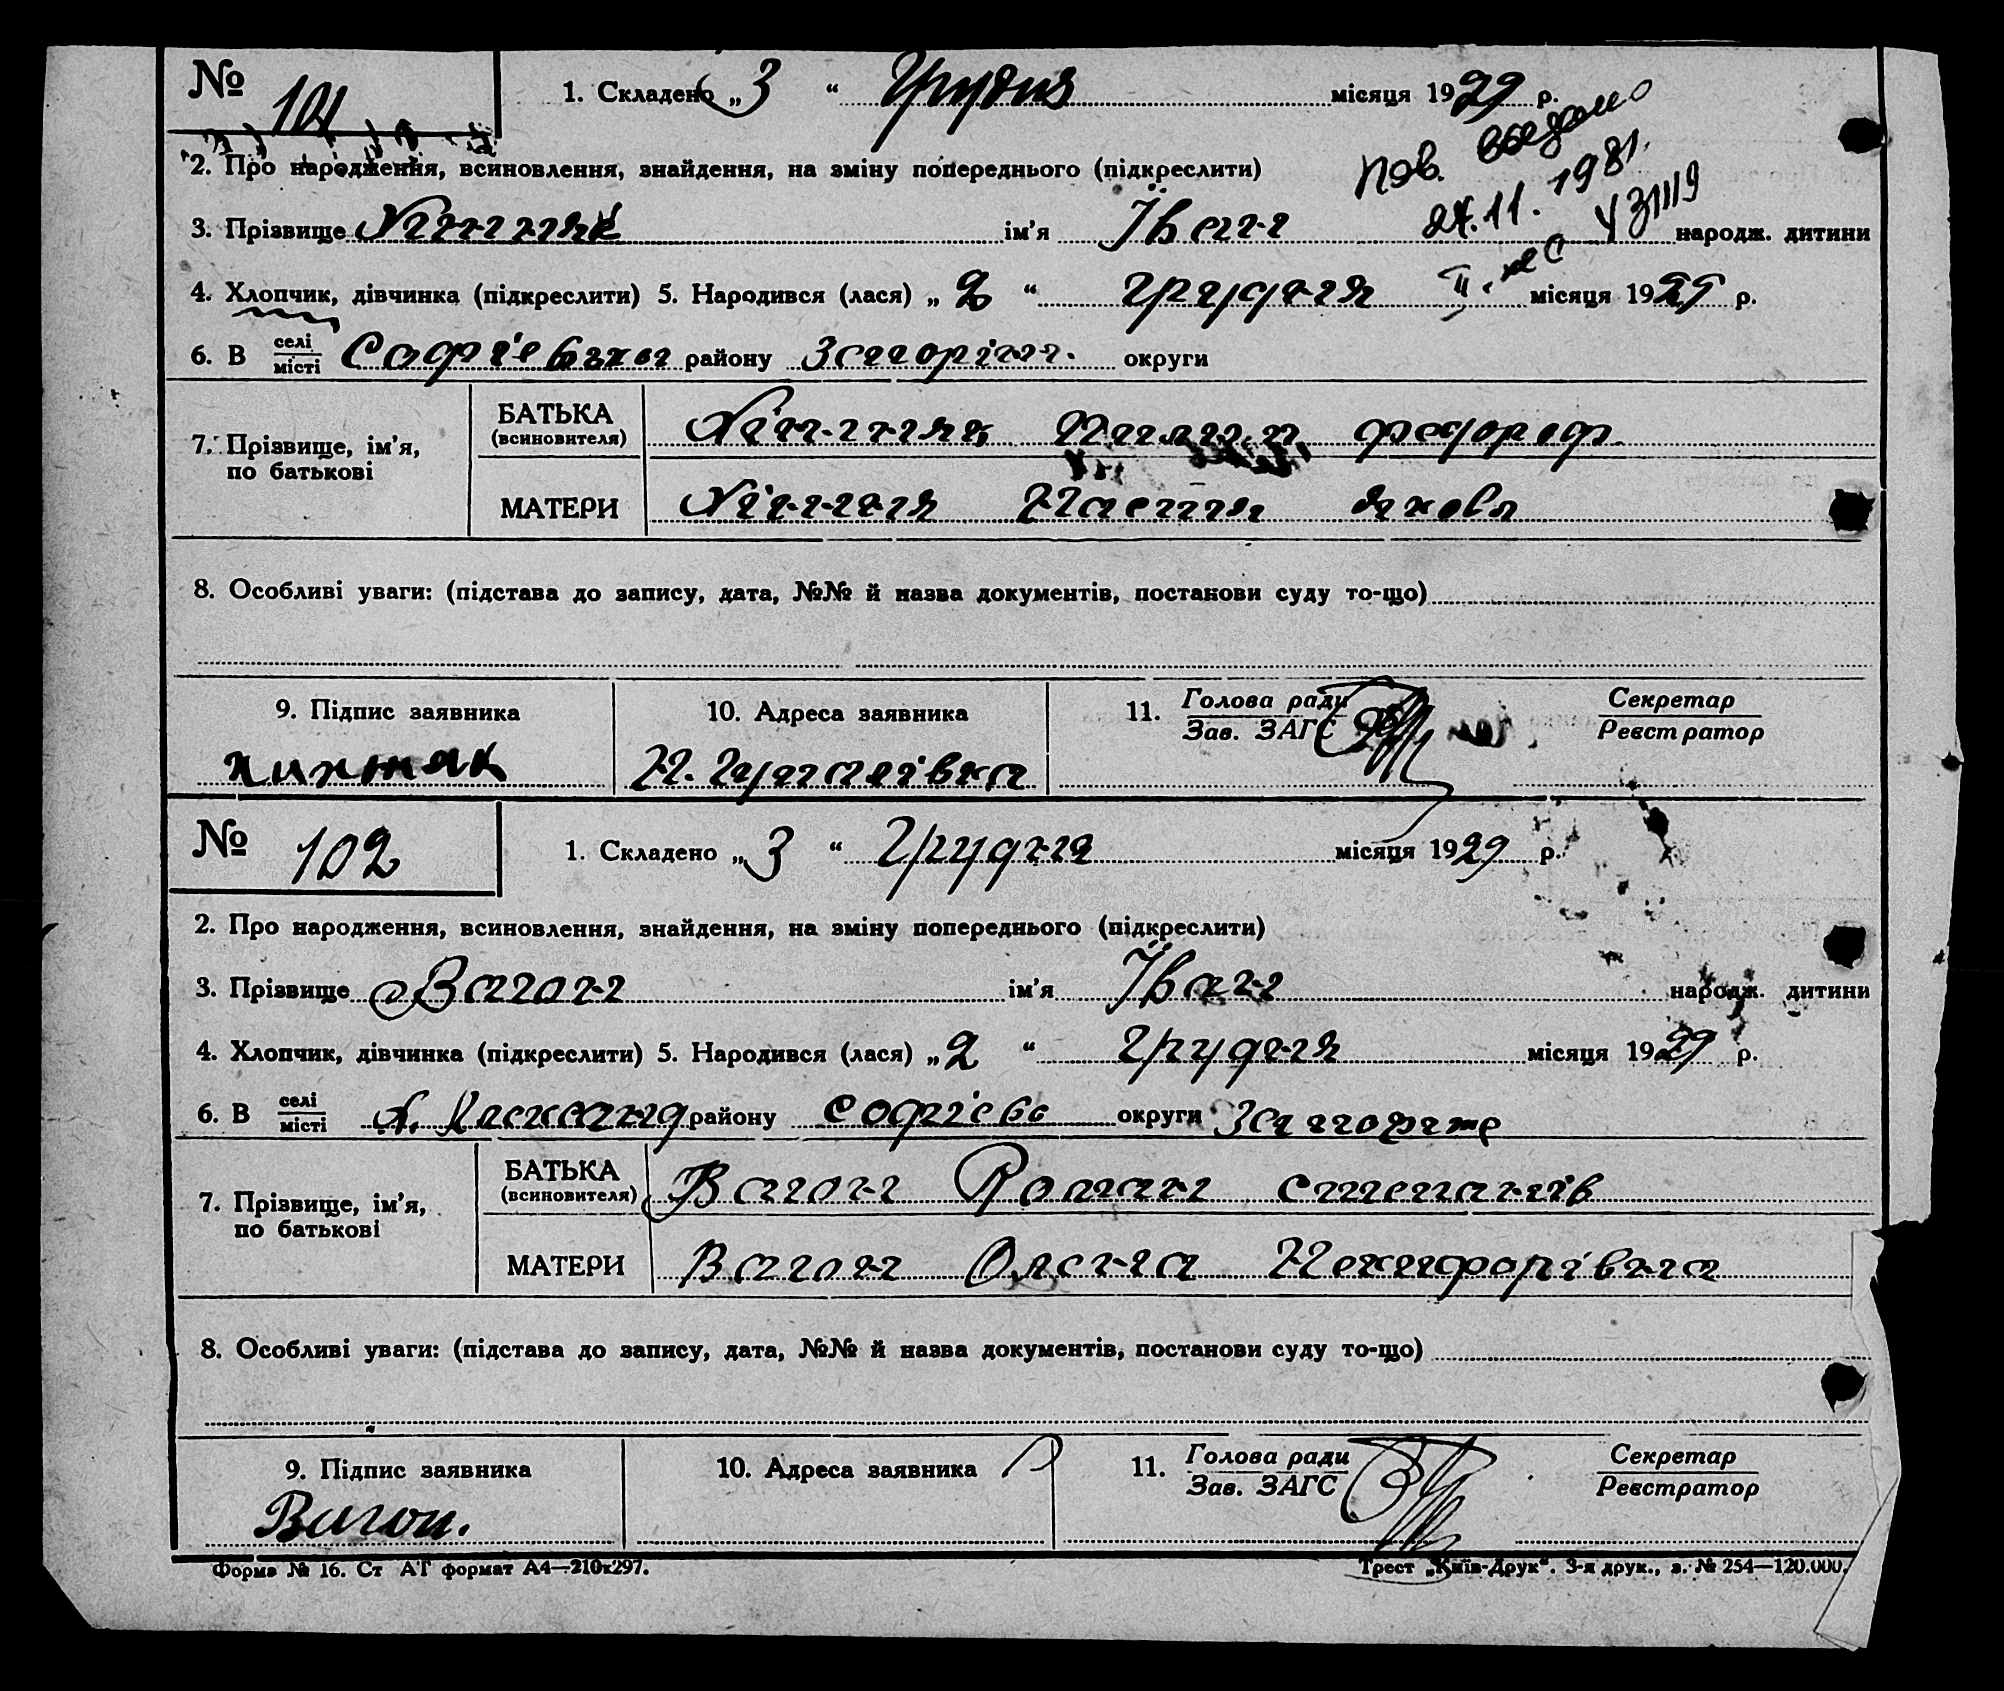 № 101 1. Складено „3“ Грудня місяця 1929 р.
2. Про народження, всиновлення, знайдення, на зміну попереднього (підкреслити)
пов. видано
24.11.1981.
3. Прізвище ім'я Іван народж. дитини
4. Хлопчик, дівчинка (підкреслити) 5. Народився (лася) „2“ грудня місяця 1929 р.
6. В селі/місті Софіевъка району Запоріж. округи
7. Прізвище, ім'я, по батькові
БАТЬКА (всиновителя) федороф.
МАТЕРИ яковл
8. Особливі уваги: (підстава до запису, дата, №№ й назва документів, постанови суду то-що)
9. Підпис заявника 10. Адреса заявника 11. Голова ради/Зав. ЗАГС Секретар/Реєстратор
№ 102 1. Складено „3“ Грудня місяця 1929 р.
2. Про народження, всиновлення, знайдення, на зміну попереднього (підкреслити)
3. Прізвище Вагон ім'я Іван народж. дитини
4. Хлопчик, дівчинка (підкреслити) 5. Народився (лася) „2“ грудня місяця 1929 р.
6. В селі/місті району Софієв округи
7. Прізвище, ім'я, по батькові
БАТЬКА (всиновителя) Вагон Роман степанів
МАТЕРИ Вагон Олена Некифорівна
8. Особливі уваги: (підстава до запису, дата, №№ й назва документів, постанови суду то-що)
9. Підпис заявника 10. Адреса заявника 11. Голова ради/Зав. ЗАГС Секретар/Реєстратор
Вагон.
Форма № 16. Ст АГ формат А4—210х297. Трест „Київ-Друк“. 3-я друк., з. № 254—120.000.